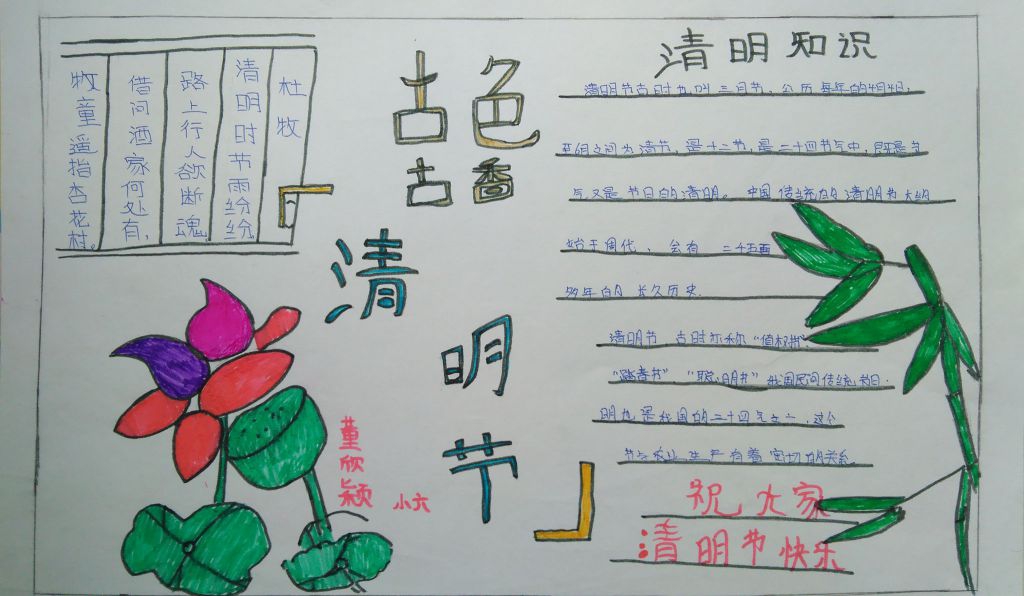 杜牧
清明时节雨纷纷
路上行人欲断魂
借问酒家何处有,
牧童遥指杏花村。
古色
古香
清明节
董欣颖
小六
清明知识
清明节古时也叫三月节,公历每年的4月4日,
至6日之间为清节,是十二节,是二十四节气中,既是节
气又是节日的清明。中国传统的清明节大约
始于周代,会有二千五百
多年的长久历史.
清明节 古时亦称
“踏青节”“聪明节”我国民间传统节日.
明也是我国的二十四气之一,这个
节与农业生产有着密切的关系.
祝大家
清明节快乐